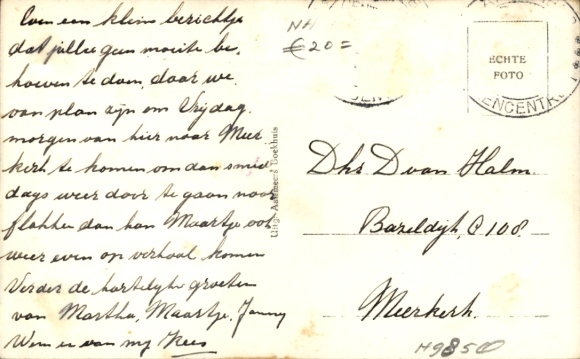 Even een klein berichtje
dat jullie geen moeite be-
hoeven te doen, daar we
van plan zijn om Vrijdag
morgen van hier naar Meer
kerk te komen om dan smid
dags weer door te gaan naar
flakkee dan kan Maartje ook
weer even op verhaal komen
Verder de hartelijke groeten
van Martha, Maartje, Janny
Wim en van mij Kees
Uitg. Aalsmeer's Boekhuis
NH
€20=
ECHTE
FOTO
ENCENTR
Dhr D van Halm.
Bazeldijk, C 108.
Meerkerk.
H98500